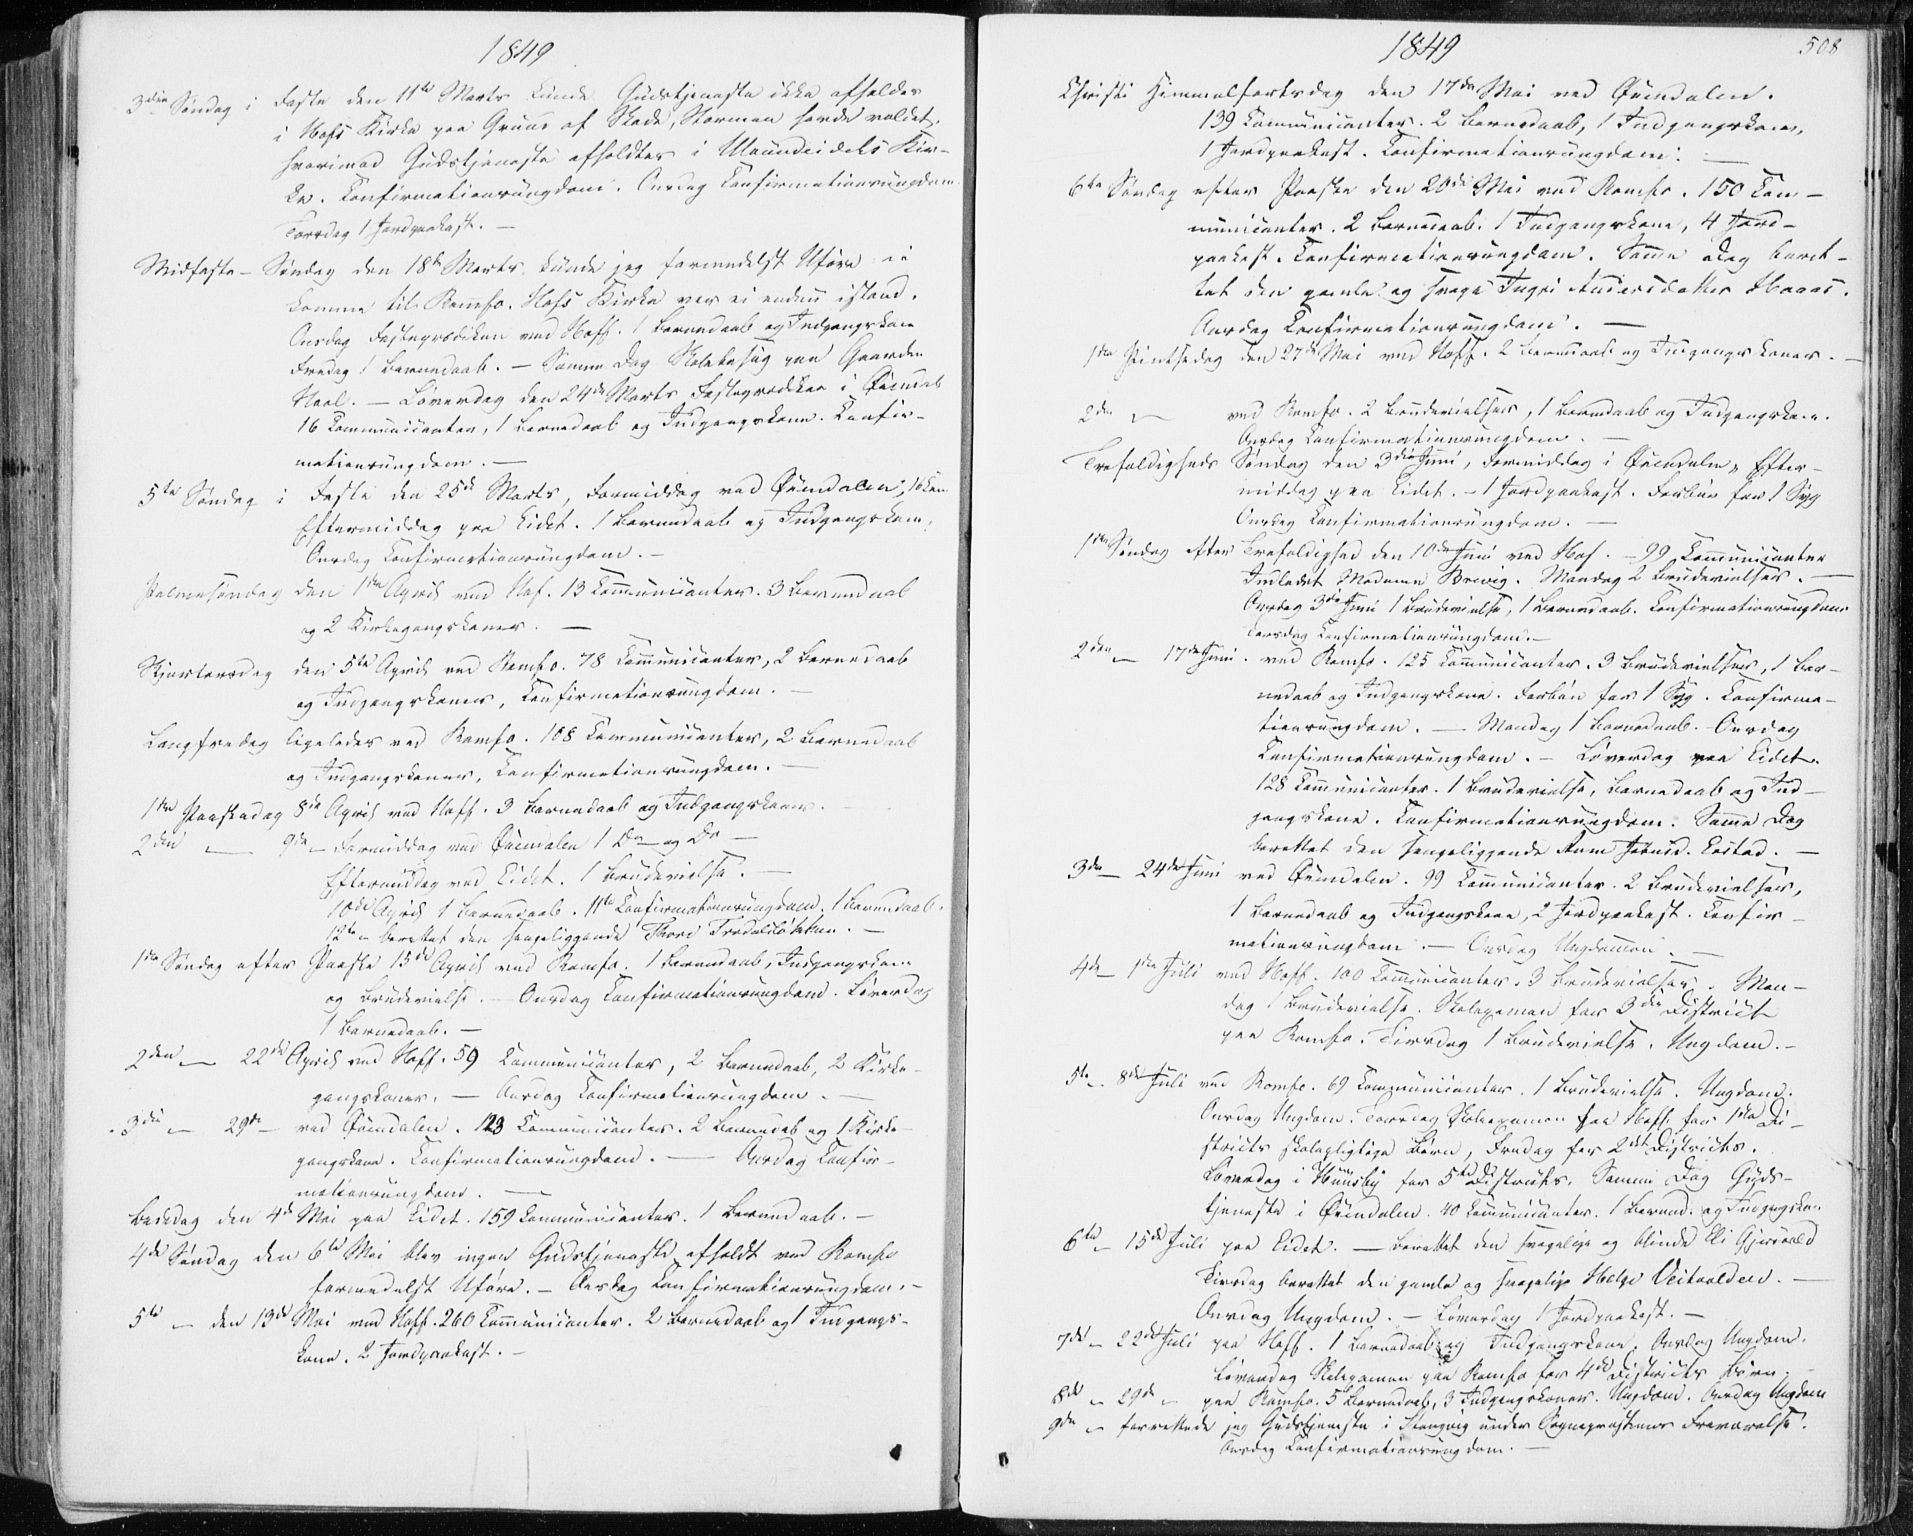 1849
3die Søndag i Faste den 11te Marts kunde Gudstjeneste ikke afholdes
i Hofs Kirke paa Grund af Skade, Stormen havde voldet,
hvorimod Gudstjeneste afholdtes i Ulvundeidets Kir-
ke. Confirmationsungdom. Onsdag Confirmationsungdom.
Torsdag 1 Jordpaakast. —
Midfaste-Søndag den 18de Marts kunde jeg formedelst Uføre ei
komme til Romfo. Hofs Kirke var ei endnu istand.
Onsdag Fasteprædiken ved Hoff. 1 Barnedaab og Indgangskone
Fredag 1 Barnedaab. — Samme Dag paa Gaarden
Hoel. — Løverdag den 24de Marts Fasteprædiken i Øxendal
16 Communicanter, 1 Barnedaab og Indgangskone. Confir-
mationsungdom. —
5te Søndag i Faste den 25de Marts, Formiddag ved Øxendalen,
Eftermiddag paa Eidet. 1 Barnedaab og Indgangskone.
Onsdag Confirmationsungdom. —
Palmesøndag den 1ste April ved Hof. 13 Communicanter. 3 Barnedaab
og 2 Kirkegangskoner. —
Skjærtorsdag den 5te April ved Romfo. 78 Communicanter, 2 Barnedaab
og Indgangskoner, Confirmationsungdom. —
Langfredag ligeledes ved Romfo. 108 Communicanter, 2 Barnedaab
og Indgangskoner, Confirmationsungdom. —
1ste Paaskedag 8de April ved Hoff. 3 Barnedaab og Indgangskoner. —
2den — 9de — Formiddag ved Øxendalen 1 Do — og Do —
Eftermiddag ved Eidet. 1 Brudevielse. —
10de April 1 Barnedaab. 11te Confirmationsungdom. 1 Barnedaab.
12te — berettet den sengeliggende Thore —
1ste Søndag efter Paaske 15de April ved Romfo. 1 Barnedaab, Indgangskone
og Brudevielse. — Onsdag Confirmationsungdom. Løverdag
1 Barnedaab. —
2den — 22de April ved Hoff. 59 Communicanter, 2 Barnedaab, 2 Kirke-
gangskoner. — Onsdag Confirmationsungdom. —
3die — 29de — ved Øxendalen. 123 Communicanter. 2 Barnedaab og 1 Kirke-
gangskone. Confirmationsungdom. — Onsdag Confir-
mationsungdom. —
Bededag den 4de Mai paa Eidet. 159 Communicanter. 1 Barnedaab. —
4de Søndag den 6te Mai blev ingen Gudstjeneste afholdt ved Romfo
formedelst Uføre. — Onsdag Confirmationsungdom. —
5te — den 13de Mai ved Hoff. 260 Communicanter. 2 Barnedaab og 1 Indgangs-
kone. 2 Jordpaakast. —
1849
508
Christi Himmelfartsdag den 17de Mai ved Øxendalen.
139 Communicanter. 2 Barnedaab, 1 Indgangskone,
1 Jordpaakast. Confirmationsungdom. —
6te Søndag efter Paaske den 20de Mai ved Romfo. 150 Com-
municanter. 2 Barnedaab. 1 Indgangskone, 4 Jord-
paakast. Confirmationsungdom. Samme Dag beret-
tet den gamle og svage Ingri Andersdatter Hoaas.
Onsdag Confirmationsungdom. —
1ste Pintsedag den 27de Mai ved Hoff. 2 Barnedaab og Indgangskoner. —
2den — ved Romfo. 2 Brudevielser, 1 Barnedaab og Indgangskone.
Onsdag Confirmationsungdom. —
Trefoldigheds Søndag den 3die Juni, Formiddag i Øxendalen, Efter-
middag paa Eidet. — 1 Jordpaakast. Forbøn for 1 Syg
Onsdag Confirmationsungdom. —
1ste Søndag efter Trefoldighed den 10de Juni ved Hof. — 99 Communicanter
Indledet Madame Brevig. Mandag 2 Brudevielser. —
Onsdag 3die Juni 1 Brudevielse, 1 Barnedaab. Confirmationsungdom
Torsdag Confirmationsungdom. —
2den — 17de Juni. ved Romfo. 125 Communicanter. 3 Brudevielser, 1 Bar-
nedaab og Indgangskone. Forbøn for 1 Syg. Confirma-
tionsungdom. — Mandag 1 Barnedaab. Onsdag
Confirmationsungdom. — Løverdag paa Eidet.
128 Communicanter. 1 Brudevielse, Barnedaab og Ind-
gangskone. Confirmationsungdom. Samme Dag
berettet den sengeliggende Arne —
3die — 24de Juni ved Øxendalen. 99 Communicanter. 2 Brudevielser,
1 Barnedaab og Indgangskone, 2 Jordpaakast. Confir-
mationsungdom. — Onsdag Ungdommen. —
4de — 1ste Juli ved Hoff. 100 Communicanter. 3 Brudevielser. Man-
dag 1 Brudevielse. Skoleexamen for 3die District
paa Romfo. Tirsdag 1 Brudevielse. Ungdom. —
5te — 8de Juli ved Romfo. 69 Communicanter. 1 Brudevielse. Ungdom.
Onsdag Ungdom. Torsdag Skoleexamen paa Hoff for 1ste Di-
stricts skolepligtige Børn, Fredag for 2det Districts.
Løverdag i for 5te Districts. Samme Dag Guds-
tjeneste i Øxendalen. 40 Communicanter. 1 Barned. og Indgangskone
6te — 15de Juli paa Eidet. — berettet den svagelige og blinde Eli
Tirsdag berettet den gamle og svagelige Helge —
Onsdag Ungdom. — Løverdag 1 Jordpaakast. —
7de — 22de Juli paa Hoff. 1 Barnedaab og Indgangskone. Onsdag Ungdom.
Løverdag Skoleexamen paa Romfo for 4de Districts Børn. —
8de — 29de — paa Romfo. 5 Barnedaab, 3 Indgangskoner. Ungdom. Onsdag Ungdom
9de — forrettede jeg Gudstjeneste i Stangvig under Sognepræstens Fraværelse.
Onsdag Confirmationsungdom. —